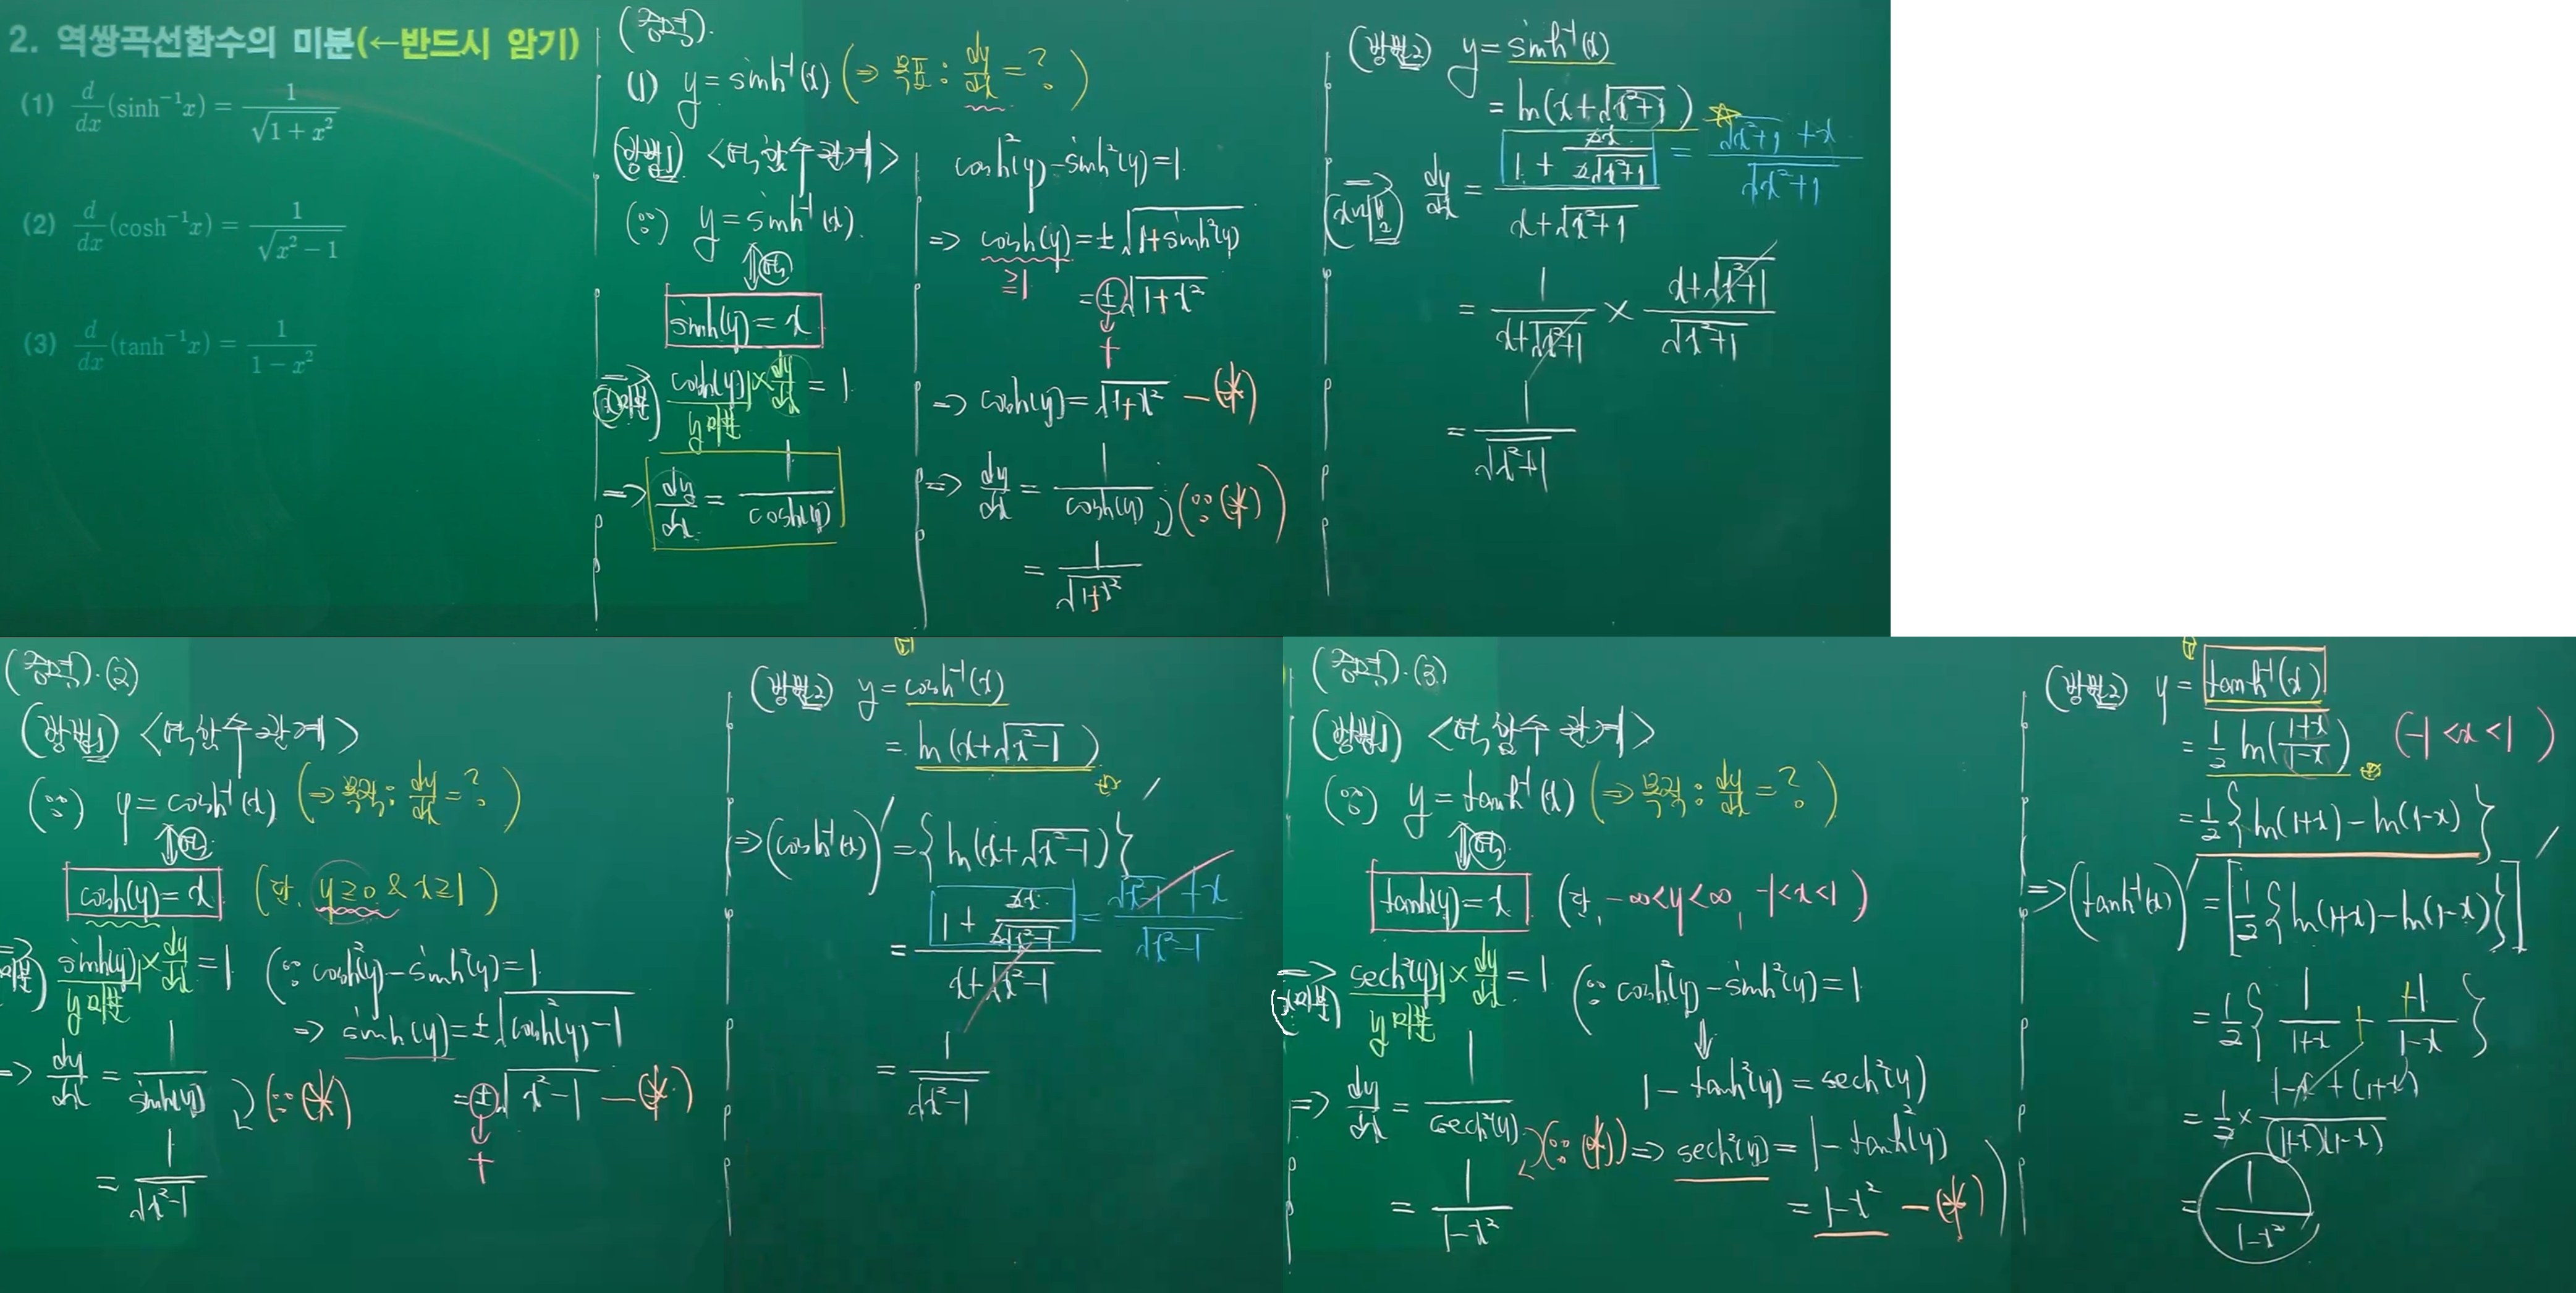 2. 역쌍곡선함수의 미분(←반드시 암기)
(1) d/dx (sinh⁻¹x) = 1/√(1 + x²)
(2) d/dx (cosh⁻¹x) = 1/√(x² − 1)
(3) d/dx (tanh⁻¹x) = 1/(1 − x²)
(증명).
(1) y = sinh⁻¹(x) (⇒ 목표 : dy/dx = ?)
(방법1) <역함수 관계>
(∵) y = sinh⁻¹(x).
⇕ (역)
sinh(y) = x
⇒ (x미분) cosh(y) × dy/dx = 1
y미분
⇒ dy/dx = 1/cosh(y)
cosh²(y) − sinh²(y) = 1
⇒ cosh(y) = ±√(1+sinh²(y))
≥1
= ±√(1+x²)
↓
+
⇒ cosh(y) = √(1+x²) — (*)
⇒ dy/dx = 1/cosh(y) (∵ (*))
= 1/√(1+x²)
(방법2) y = sinh⁻¹(x)
= ln(x+√(x²+1))
⇒ (x미분) dy/dx = (1 + 2x/(2√(x²+1)))/(x+√(x²+1)) = (√(x²+1) + x)/√(x²+1)
= 1/(x+√(x²+1)) × (x+√(x²+1))/√(x²+1)
= 1/√(x²+1)
(증명).(2)
(방법1) <역함수 관계>
(∵) y = cosh⁻¹(x) (⇒ 목적 : dy/dx = ?)
⇕ (역)
cosh(y) = x (단, y≥0 & x≥1)
⇒ 미분) sinh(y) × dy/dx = 1 (∵ cosh²(y) − sinh²(y) = 1
y미분
⇒ sinh(y) = ±√(cosh²(y) − 1)
⇒ dy/dx = 1/sinh(y) (∵ (*))
= ±√(x²−1) — (*))
↓
+
= 1/√(x²−1)
(방법2) y = cosh⁻¹(x)
= ln(x+√(x²−1))
⇒ (cosh⁻¹(x))′ = {ln(x+√(x²−1))}′
= (1 + 2x/(2√(x²−1)))/(x+√(x²−1)) = (√(x²−1) + x)/√(x²−1)
= 1/√(x²−1)
(증명).(3)
(방법1) <역함수 관계>
(∵) y = tanh⁻¹(x) (⇒ 목적 : dy/dx = ?)
⇕ (역)
tanh(y) = x (단, −∞<y<∞, −1<x<1)
⇒ (x미분) sech²(y) × dy/dx = 1 (∵ cosh²(y) − sinh²(y) = 1
y미분
↓
1 − tanh²(y) = sech²(y)
⇒ dy/dx = 1/sech²(y) (∵ (*)) ⇒ sech²(y) = 1 − tanh²(y)
= 1/(1−x²)
= 1−x² — (*))
(방법2) y = tanh⁻¹(x)
= 1/2 ln((1+x)/(1−x)) (−1<x<1)
= 1/2 {ln(1+x) − ln(1−x)}
⇒ (tanh⁻¹(x))′ = [1/2 {ln(1+x) − ln(1−x)}]′
= 1/2 {1/(1+x) + +1/(1−x)}
= 1/2 × (1−x + (1+x))/((1+x)(1−x))
= 1/(1−x²)